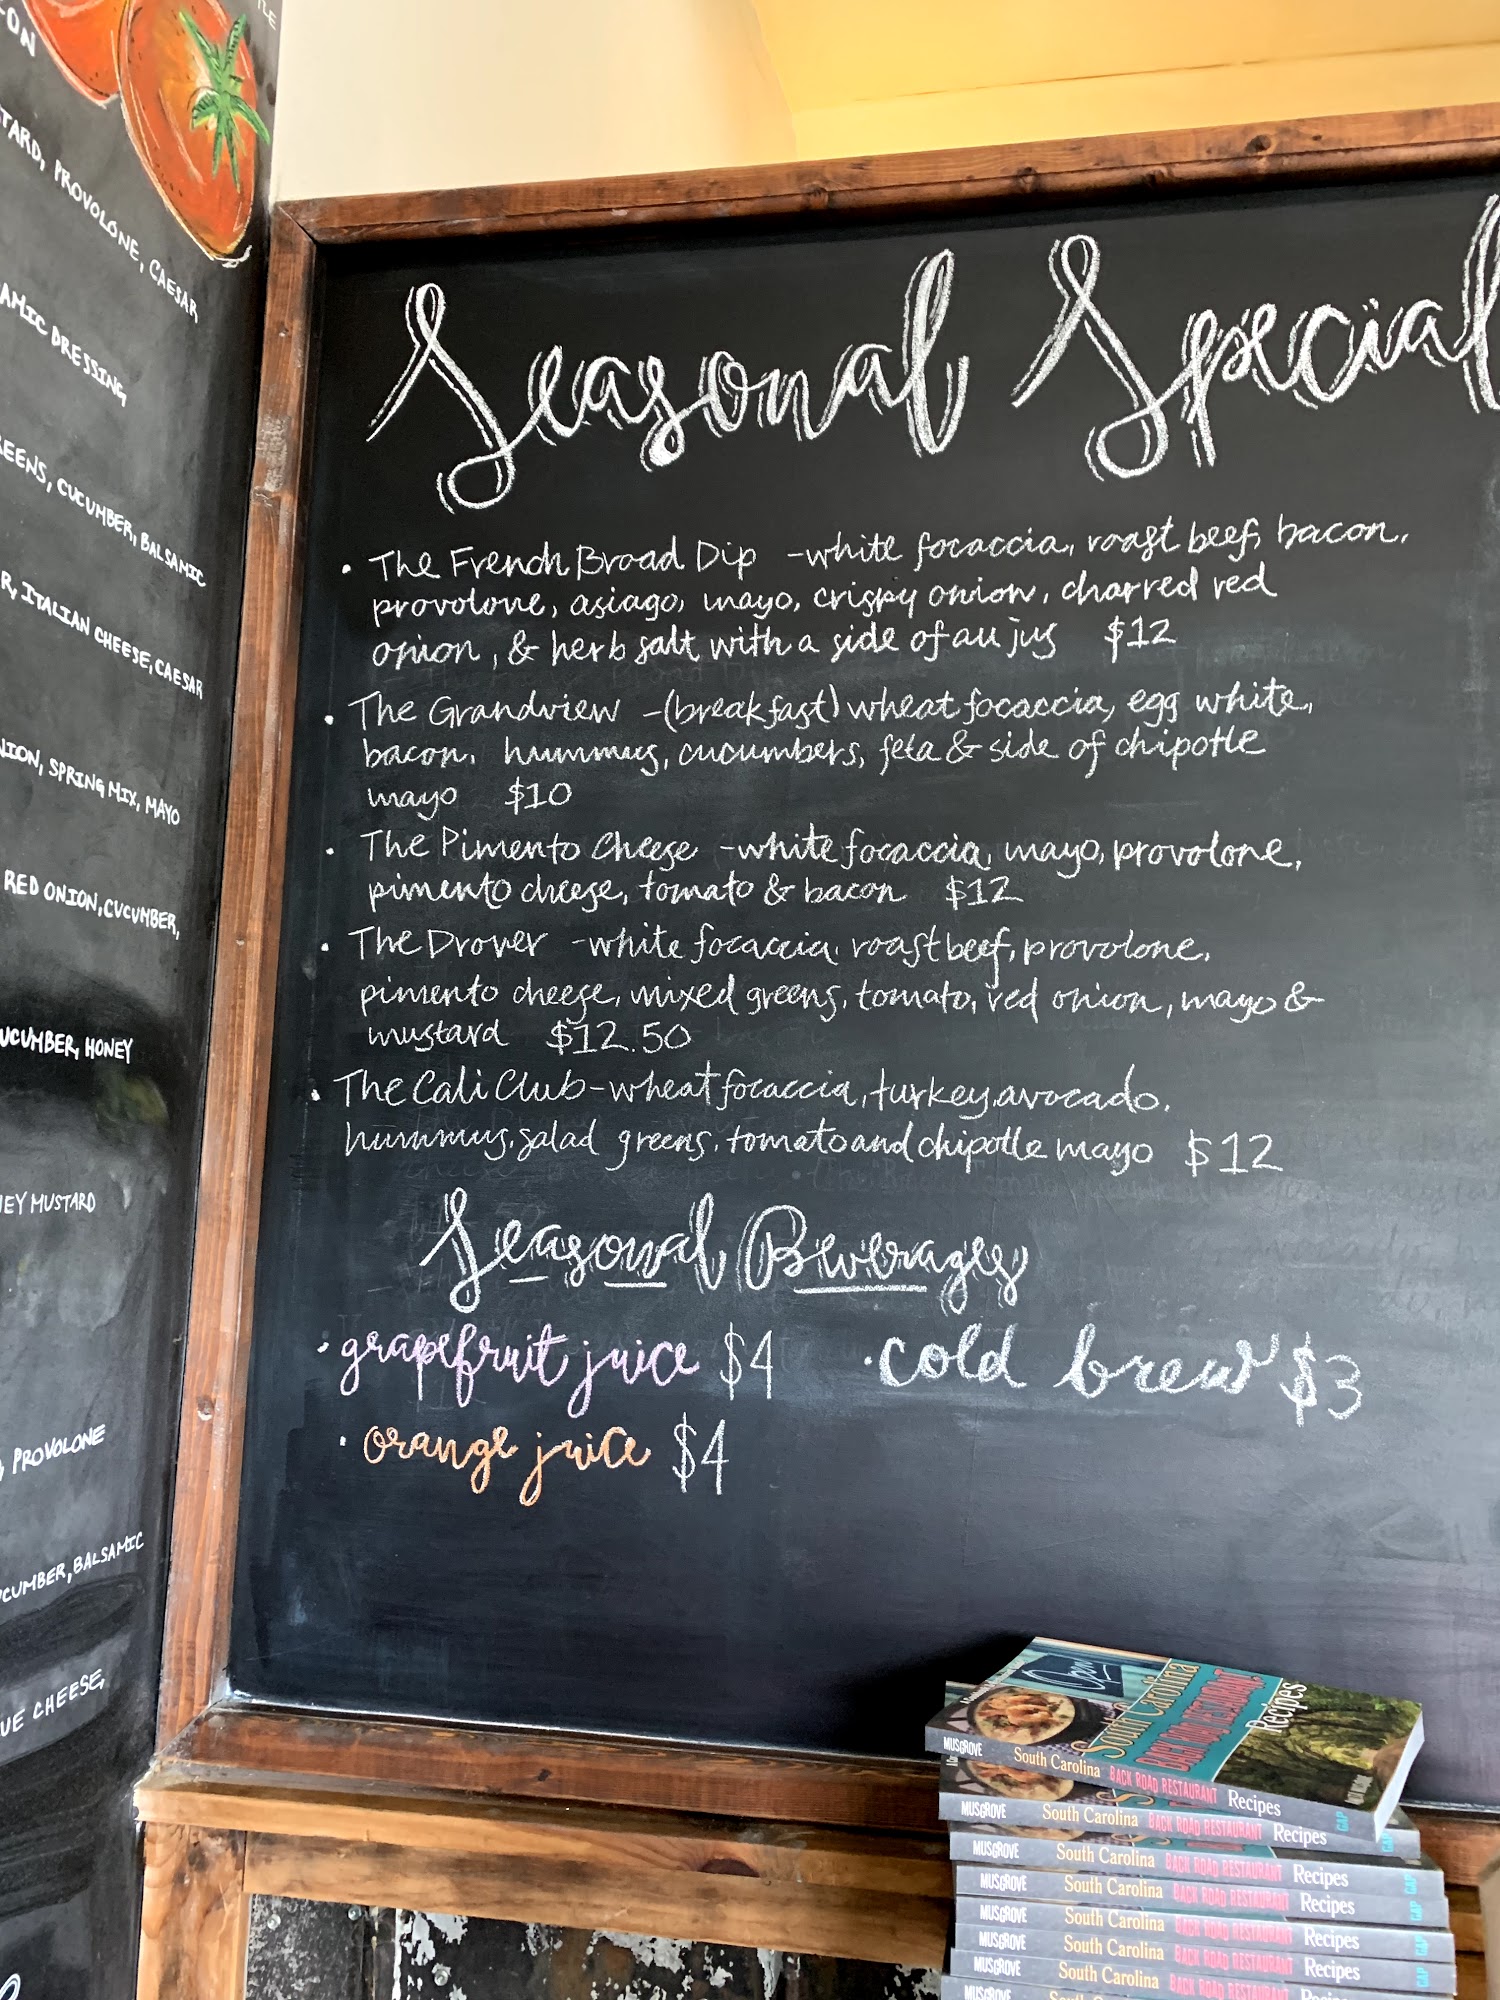 TARD, PROVOLONE, CAESAR
AMIC DRESSING
REENS, CUCUMBER, BALSAMIC
R, ITALIAN CHEESE, CAESAR
NION, SPRING MIX, MAYO
RED ONION, CUCUMBER,
UCUMBER, HONEY
EY MUSTARD
PROVOLONE
CUMBER, BALSAMIC
UE CHEESE,
Seasonal Special
• The French Broad Dip - white focaccia, roast beef, bacon,
provolone, asiago, mayo, crispy onion, charred red
onion, & herb salt with a side of au jus $12
• The Grandview - (breakfast) wheat focaccia, egg white,
bacon, hummus, cucumbers, feta & side of chipotle
mayo $10
• The Pimento Cheese - white focaccia, mayo, provolone,
pimento cheese, tomato & bacon $12
• The Drover - white focaccia, roast beef, provolone,
pimento cheese, mixed greens, tomato, red onion, mayo &
mustard $12.50
• The Cali Club - wheat focaccia, turkey, avocado,
hummus, salad greens, tomato and chipotle mayo $12
Seasonal Beverages
• grapefruit juice $4 • cold brew $3
• orange juice $4
Open
South Carolina
BACK ROAD RESTAURANT
Recipes
MUSGROVE South Carolina BACK ROAD RESTAURANT Recipes GAP
MUSGROVE South Carolina BACK ROAD RESTAURANT Recipes GAP
MUSGROVE South Carolina BACK ROAD RESTAURANT Recipes GAP
MUSGROVE South Carolina BACK ROAD RESTAURANT Recipes GAP
MUSGROVE South Carolina BACK ROAD RESTAURANT Recipes GAP
MUSGROVE South Carolina BACK ROAD RESTAURANT Recipes GAP
MUSGROVE South Carolina BACK ROAD RESTAURANT Recipes GAP